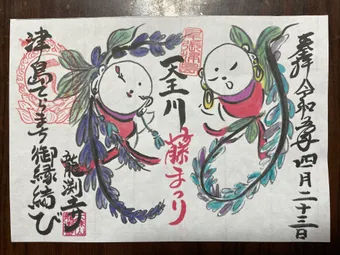 奉拝 令和五年 四月二十三日
天王川
藤まつり
津島てらまち御縁結び
龍渕寺